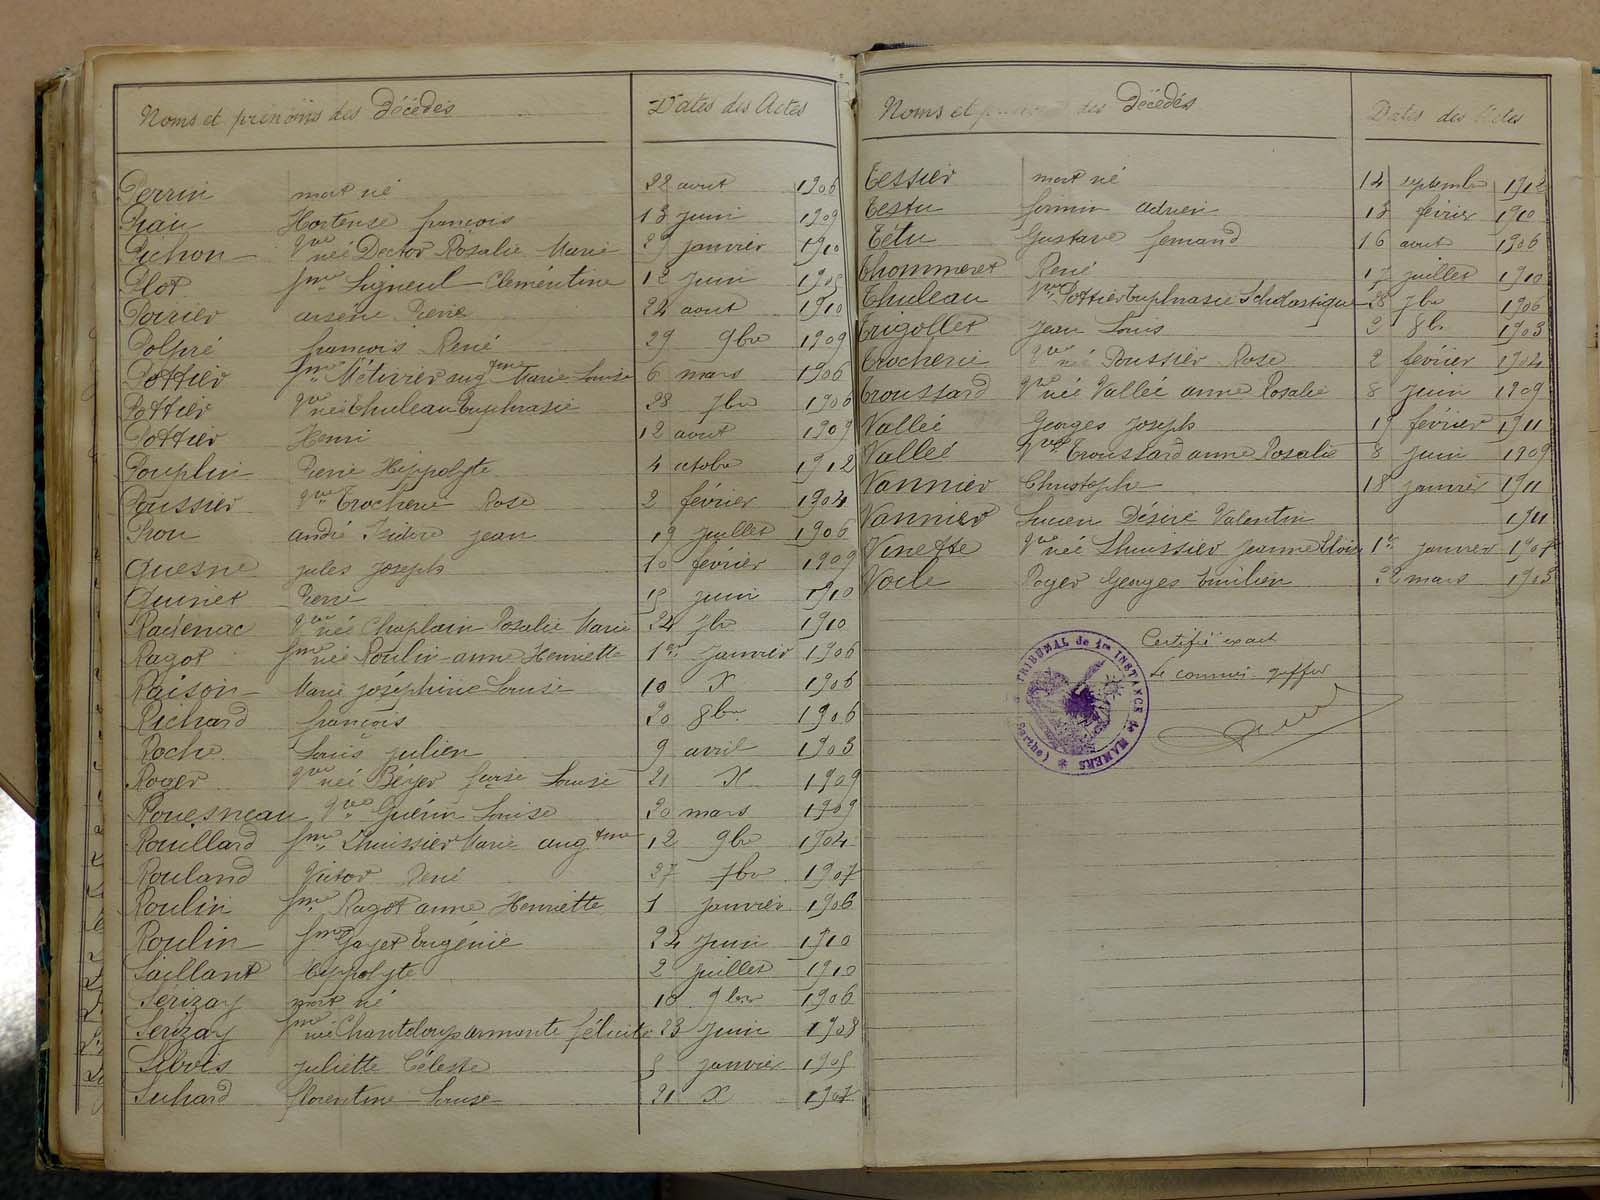 Noms et prénoms des Décédés Dates des Actes
Perrin mort né 22 aout 1906
Piau Hortense françois 13 juin 1909
Pichon Vve née Dector Rosalie Marie 27 janvier 1910
Plot fme Suigneul Clémentine 12 juin 1905
Poirier arsène Pierre 24 aout 1910
Polpré françois René 29 9bre 1909
Pottier fme Métivier Marie Louise 6 mars 1906
Pottier Vve née Thuleau Euphrasie 28 7bre 1906
Pottier Henri 12 aout 1909
Pouplin Pierre Hippolyte 4 octobre 1912
Poussier Vve Trocherie Rose 2 février 1904
Prou andré Isidore jean 19 juillet 1906
Quesne jules joseph 10 février 1909
Quinet Pierre 15 juin 1910
Radenac Vve née Chaplain Rosalie Marie 24 7bre 1910
Ragot fme née Roulin anne Henriette 1er janvier 1906
Raison Marie joséphine Louise 10 X 1906
Richard françois 20 8bre 1906
Roche Louis julien 9 avril 1903
Roger Vve née Béyer Louise 21 X 1909
Rouesneau Vve Guérin Louise 20 mars 1909
Rouillard fme Lhuissier Marie augtine 12 9bre 1904
Rouland Victor René 27 7bre 1907
Roulin fme Ragot anne Henriette 1 janvier 1906
Roulin fme Gayet Eugénie 24 juin 1910
Saillant Hippolyte 2 juillet 1910
Serizay mort né 10 9bre 1906
Serizay fme née Chanteloup armante félicité 23 juin 1908
Silvois juliette Céleste 5 janvier 1905
Suhard florentine Louise 21 X 1907
Noms et prénoms des Décédés Dates des Actes
Tessier mort né 14 septembre 1912
Testu firmin adrien 13 février 1910
Tétu Gustave fernand 16 aout 1906
Thommeret René 17 juillet 1910
Thuleau fme Pottier Euphrasie Scholastique 28 7bre 1906
Trigollet jean Louis 2 8bre 1903
Trocherie Vve née Poussier Rose 2 février 1904
Troussard Vve née Vallée anne Rosalie 8 juin 1909
Vallée Georges joseph 19 février 1911
Vallée Vve Troussard anne Rosalie 8 juin 1909
Vannier Christophe 18 janvier 1911
Vannier Lucien Désiré Valentin 1911
Vinette Vve née Lhuissier jeanne 1er janvier 1907
Voile Roger Georges Emilien 22 mars 1903
Certifié exact
Le commis greffier
TRIBUNAL de 1re INSTANCE de MAMERS (Sarthe)